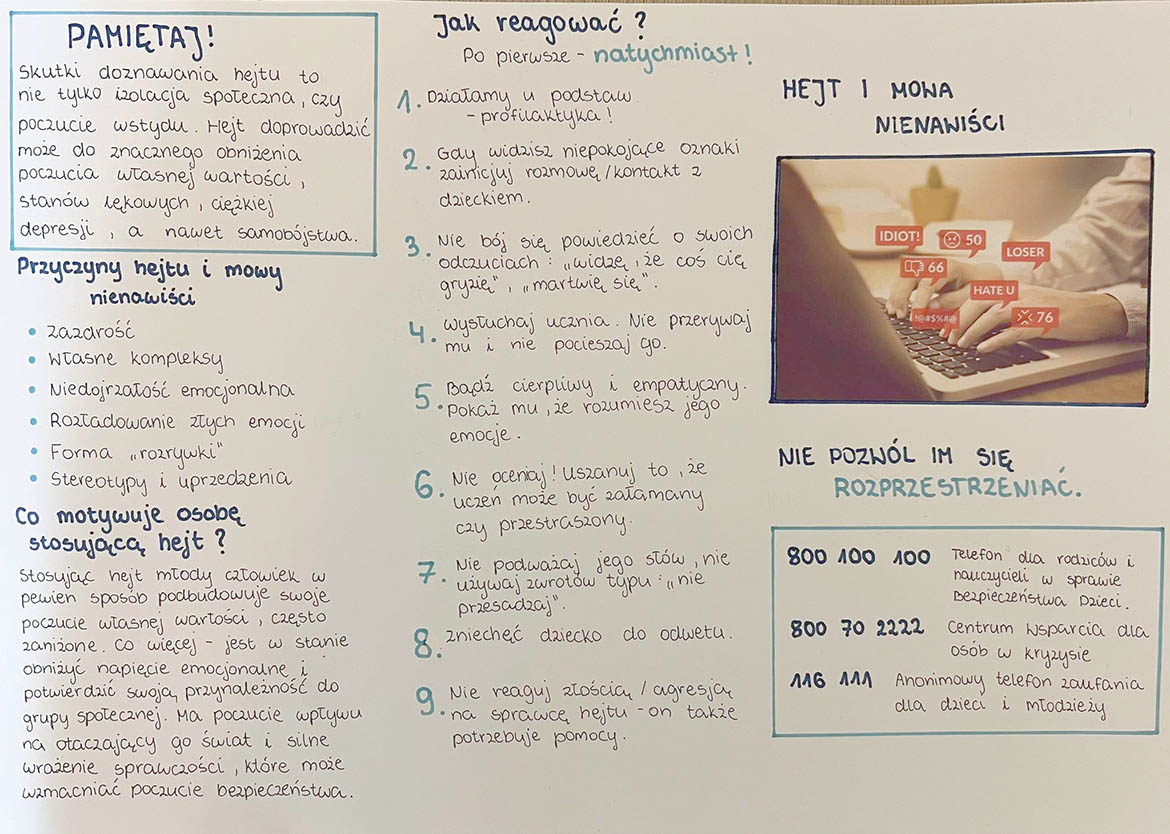 PAMIĘTAJ!
Skutki doznawania hejtu to
nie tylko izolacja społeczna, czy
poczucie wstydu. Hejt doprowadzić
może do znacznego obniżenia
poczucia własnej wartości,
stanów lękowych, ciężkiej
depresji, a nawet samobójstwa.
Przyczyny hejtu i mowy
nienawiści
• Zazdrość
• Własne kompleksy
• Niedojrzałość emocjonalna
• Rozładowanie złych emocji
• Forma „rozrywki"
• Stereotypy i uprzedzenia
Co motywuje osobę
stosującą hejt?
Stosując hejt młody człowiek w
pewien sposób podbudowuje swoje
poczucie własnej wartości, często
zaniżone. Co więcej - jest w stanie
obniżyć napięcie emocjonalne i
potwierdzić swoją przynależność do
grupy społecznej. Ma poczucie wpływu
na otaczający go świat i silne
wrażenie sprawczości, które może
wzmacniać poczucie bezpieczeństwa.
Jak reagować?
Po pierwsze - natychmiast!
1. Działamy u podstaw
- profilaktyka!
2. Gdy widzisz niepokojące oznaki
zainicjuj rozmowę/kontakt z
dzieckiem.
3. Nie bój się powiedzieć o swoich
odczuciach: „widzę, że coś cię
gryzie", „martwię się".
4. Wysłuchaj ucznia. Nie przerywaj
mu i nie pocieszaj go.
5. Bądź cierpliwy i empatyczny.
Pokaż mu, że rozumiesz jego
emocje.
6. Nie oceniaj! Uszanuj to, że
uczeń może być załamany
czy przestraszony.
7. Nie podważaj jego słów, nie
używaj zwrotów typu: „nie
przesadzaj".
8. Zniechęć dziecko do odwetu.
9. Nie reaguj złością / agresją
na sprawcę hejtu - on także
potrzebuje pomocy.
HEJT I MOWA
NIENAWIŚCI
IDIOT!
50
LOSER
66
HATE U
!@#$%#@
76
NIE POZWÓL IM SIĘ
ROZPRZESTRZENIAĆ.
800 100 100 Telefon dla rodziców i
nauczycieli w sprawie
Bezpieczeństwa Dzieci.
800 70 2222 Centrum Wsparcia dla
osób w kryzysie
116 111 Anonimowy telefon zaufania
dla dzieci i młodzieży